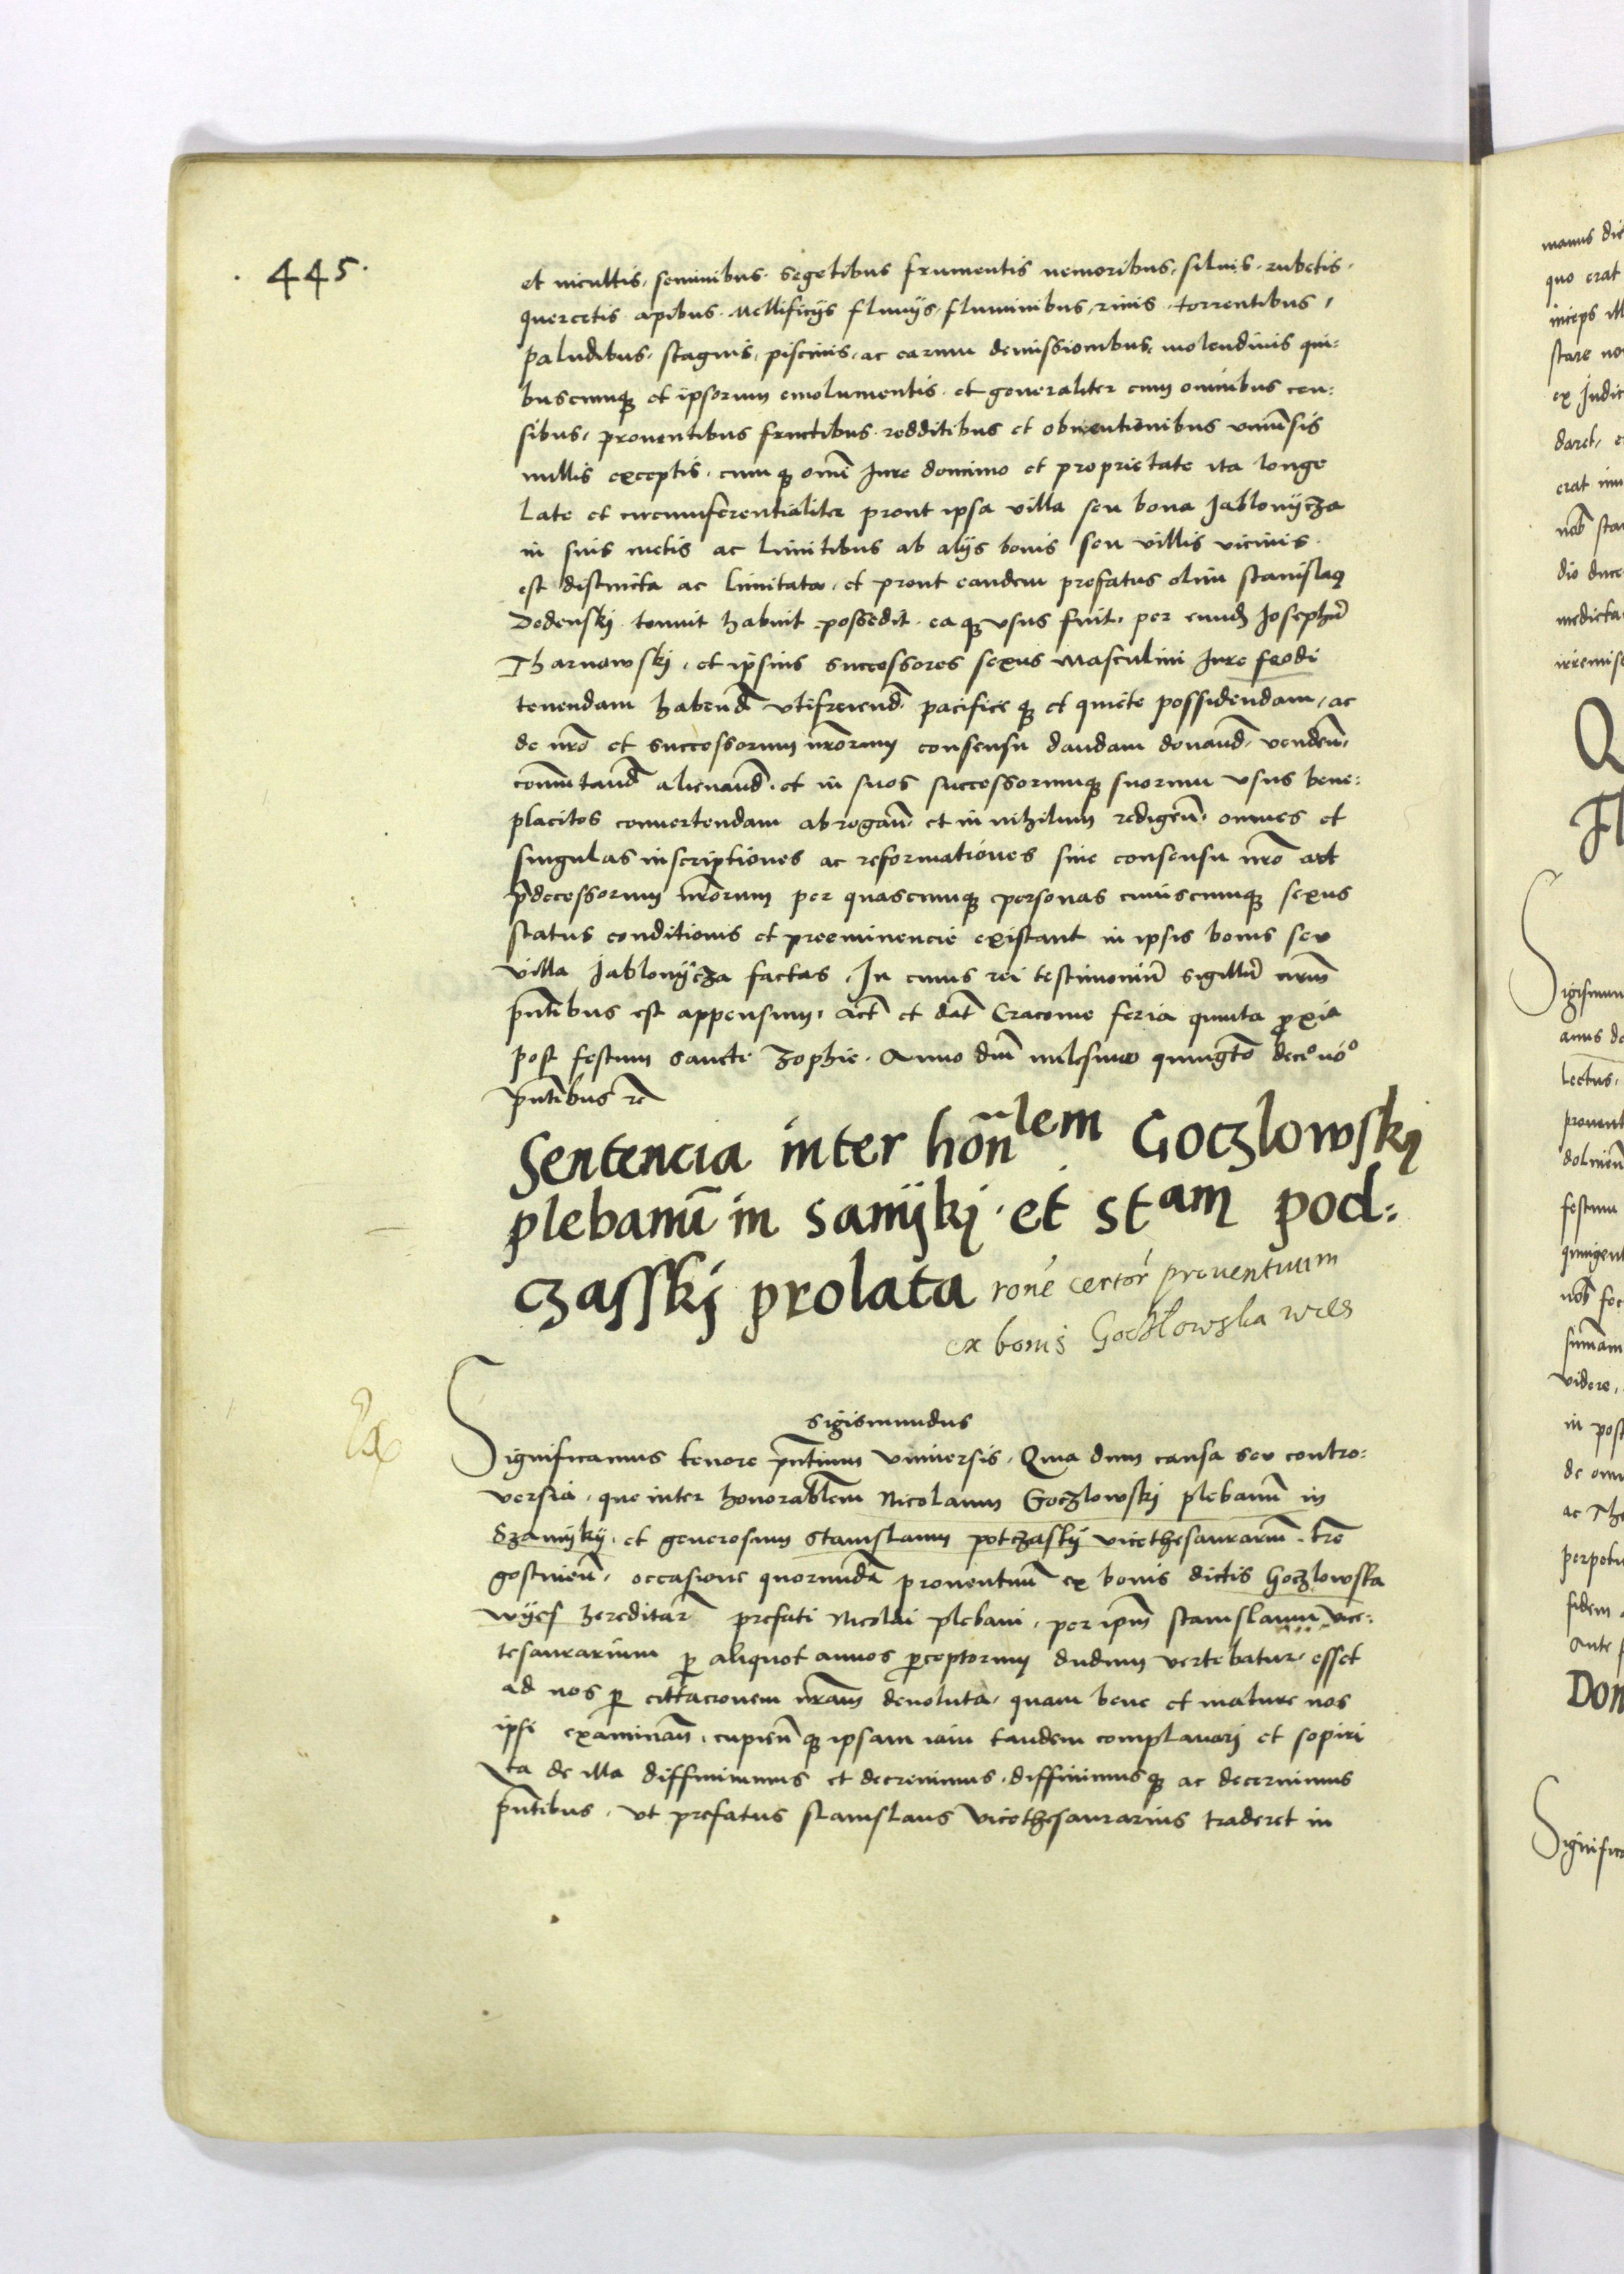 445.
et incultis, seminibus. segetibus frumentis nemoribus, siluis. rubetis.
quercetis apibus. Mellificijs fluuijs, fluminibus, riuis. torrentibus,
paludibus, stagnis, piscinis, ac earum demissionibus, molendinis qui:
buscumq et ipsorum emolumentis. et generaliter cum omnibus cen:
sibus, prouentibus fructibus. redditibus et obuentionibus vniuersis
nullis exceptis, cumq omi Jure dominio et proprietate ita longe
Late et circumferentialiter prout ipsa villa seu bona Jablonijcza
in suis metis ac limitibus ab alijs bonis seu villis vicinis.
est distincta ac limitata, et prout eandem prefatus olim stanislaq
Dedenski tenuit habuit possedit. eaq vsus fuit, per eund Josephu
Tharnowski, et ipsius successores sexus Masculini Jure feodi
tenendam habend vtifruend pacifice q et quiete possidendam, ac
de nro et successorum nrorum consensu dandam donand, venden,
comutand alienand, et in suos successorumq suorum vsus bene:
placitos conuertendam abrogan, et in nihilum redigen, omnes et
singulas inscriptiones ac reformationes sine consensu nro aut
pdecessorum nrorum per quascumq personas cuiuscumq sexus
status conditionis et preeminencie existant in ipsis bonis seu
villa Jablonijcza factas. In cuius rei testimoniu sigillu nrm
pntibus est appensum, Act et dat Cracouie feria quinta proxia
post festum sancte Zophie. Anno dni milesimo quingeto deco nóo
pntibus rc
Sentencia inter honlem Goczlowskij
plebanu in Sanijki. et stam pod:
czasski prolata rone certor prouentuum
ex bonis Goczlowska wies
Sigismundus
Significamus tenore pntium vniuersis, Quia dum causa seu contro:
versia, que inter honorablem Nicolaum Goczlowski plebanu in
Szanijkij, et generosum Stanislaum potczaskij vicethesaurarium. tre
gostinen, occasione quorumda prouentuu ex bonis dictis Goczlowska
wijes hereditar prefati Nicolai plebani, per ipm stanislaum vice:
tesaurarium p aliquot annos pceptorum dudum vertebatur, esset
ad nos p cittacionem nram deuoluta, quam bene et mature nos
ipsi examinan, cupien q ipsam iam tandem complanari et sopiri
Ita de illa diffiniuimus et decreuimus, diffinimus q ac decernimus
pntibus, vt prefatus stanislaus Vicethesaurarius traderet in